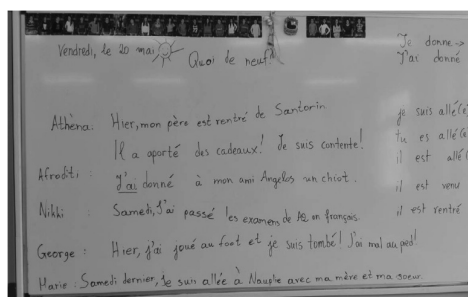 Vendredi, le 20 mai
Quoi de neuf?
Je donne →
J'ai donné
Athèna: Hier, mon père est rentré de Santorin
Il a aporté des cadeaux! Je suis contente!
Afroditi: J'ai donné à mon ami Angelos un chiot.
Nikki: Samedi, J'ai passé les examens de A2 en français.
George: Hier, j'ai joué au foot et je suis tombé! J'ai mal au pied!
Marie: Samedi dernier, je suis allée à Nauplie avec ma mère et ma soeur.
je suis allé(e)
tu es allé(e)
il est allé
il est venu
il est rentré